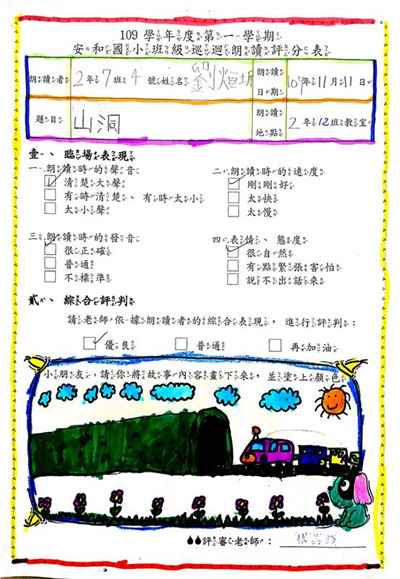 109 學年度第一學期
安和國小班級巡迴朗讀評分表
朗讀者 2年7班4號姓名 劉 朗讀日期 109年11月11日
題目 山洞 朗讀地點 2年12班教室
壹、臨場表現
一、朗讀時的聲音 二、朗讀時的速度
清楚大聲 剛剛好
有時清楚、有時太小 太快
太小聲 太慢
三、朗讀時的發音 四、表情、態度
很正確 很自然
普通 有點緊張害怕
不標準 說不出話來
貳、綜合評判
請老師依據朗讀者的綜合表現，進行評判：
優良 普通 再加油
小朋友，請你將故事內容畫下來，並塗上顏色。
評審老師：